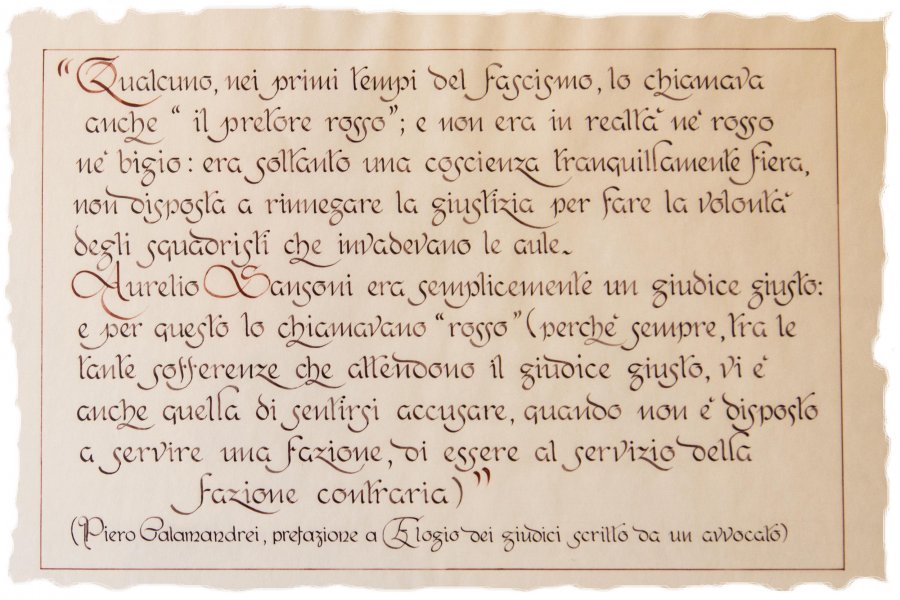 “Qualcuno, nei primi tempi del fascismo, lo chiamava
anche “ il pretore rosso”; e non era in realtà nè rosso
nè bigio: era soltanto una coscienza tranquillamente fiera,
non disposta a rinnegare la giustizia per fare la volontà
degli squadristi che invadevano le aule.
Aurelio Sansoni era semplicemente un giudice giusto:
e per questo lo chiamavano “rosso” (perchè sempre, tra le
tante sofferenze che attendono il giudice giusto, vi è
anche quella di sentirsi accusare, quando non è disposto
a servire una fazione, di essere al servizio della
fazione contraria)”
(Piero Calamandrei, prefazione a Elogio dei giudici scritto da un avvocato)